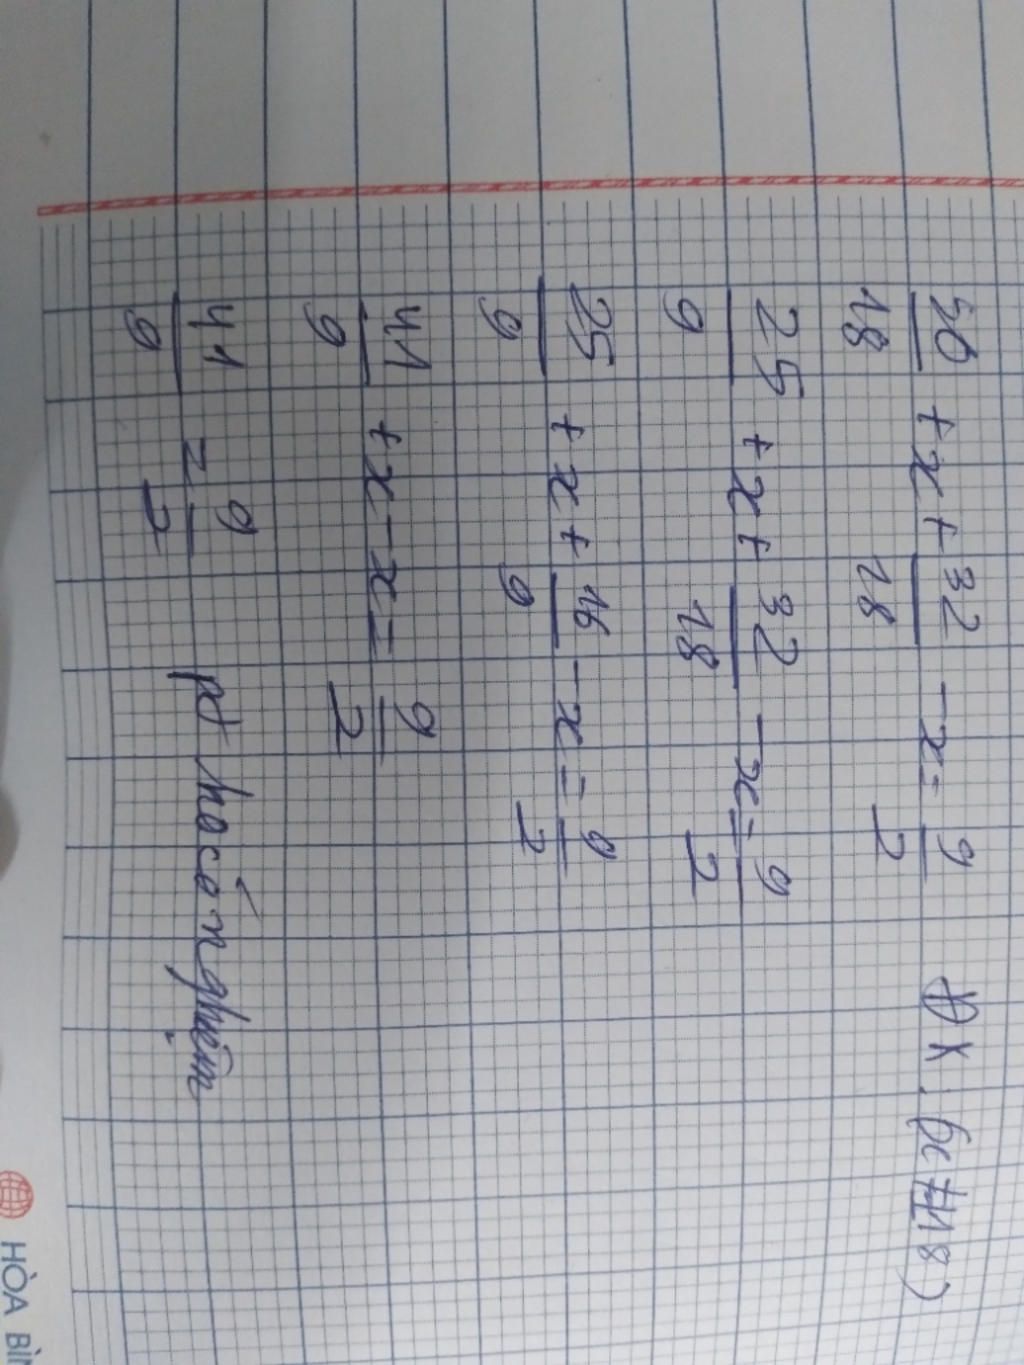 50/18 + x + 32/18 - x = 9/2 ĐK: (x ≠ ±18)
25/9 + x + 32/18 - x = 9/2
25/9 + x + 16/9 - x = 9/2
41/9 + x - x = 9/2
41/9 = 9/2 pt ko có nghiệm
HÒA BÌN